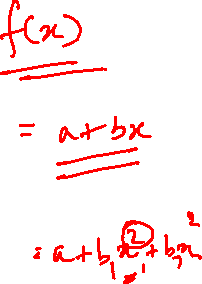 f(x)
= a+bx
= a+b₁x²+b₂x²